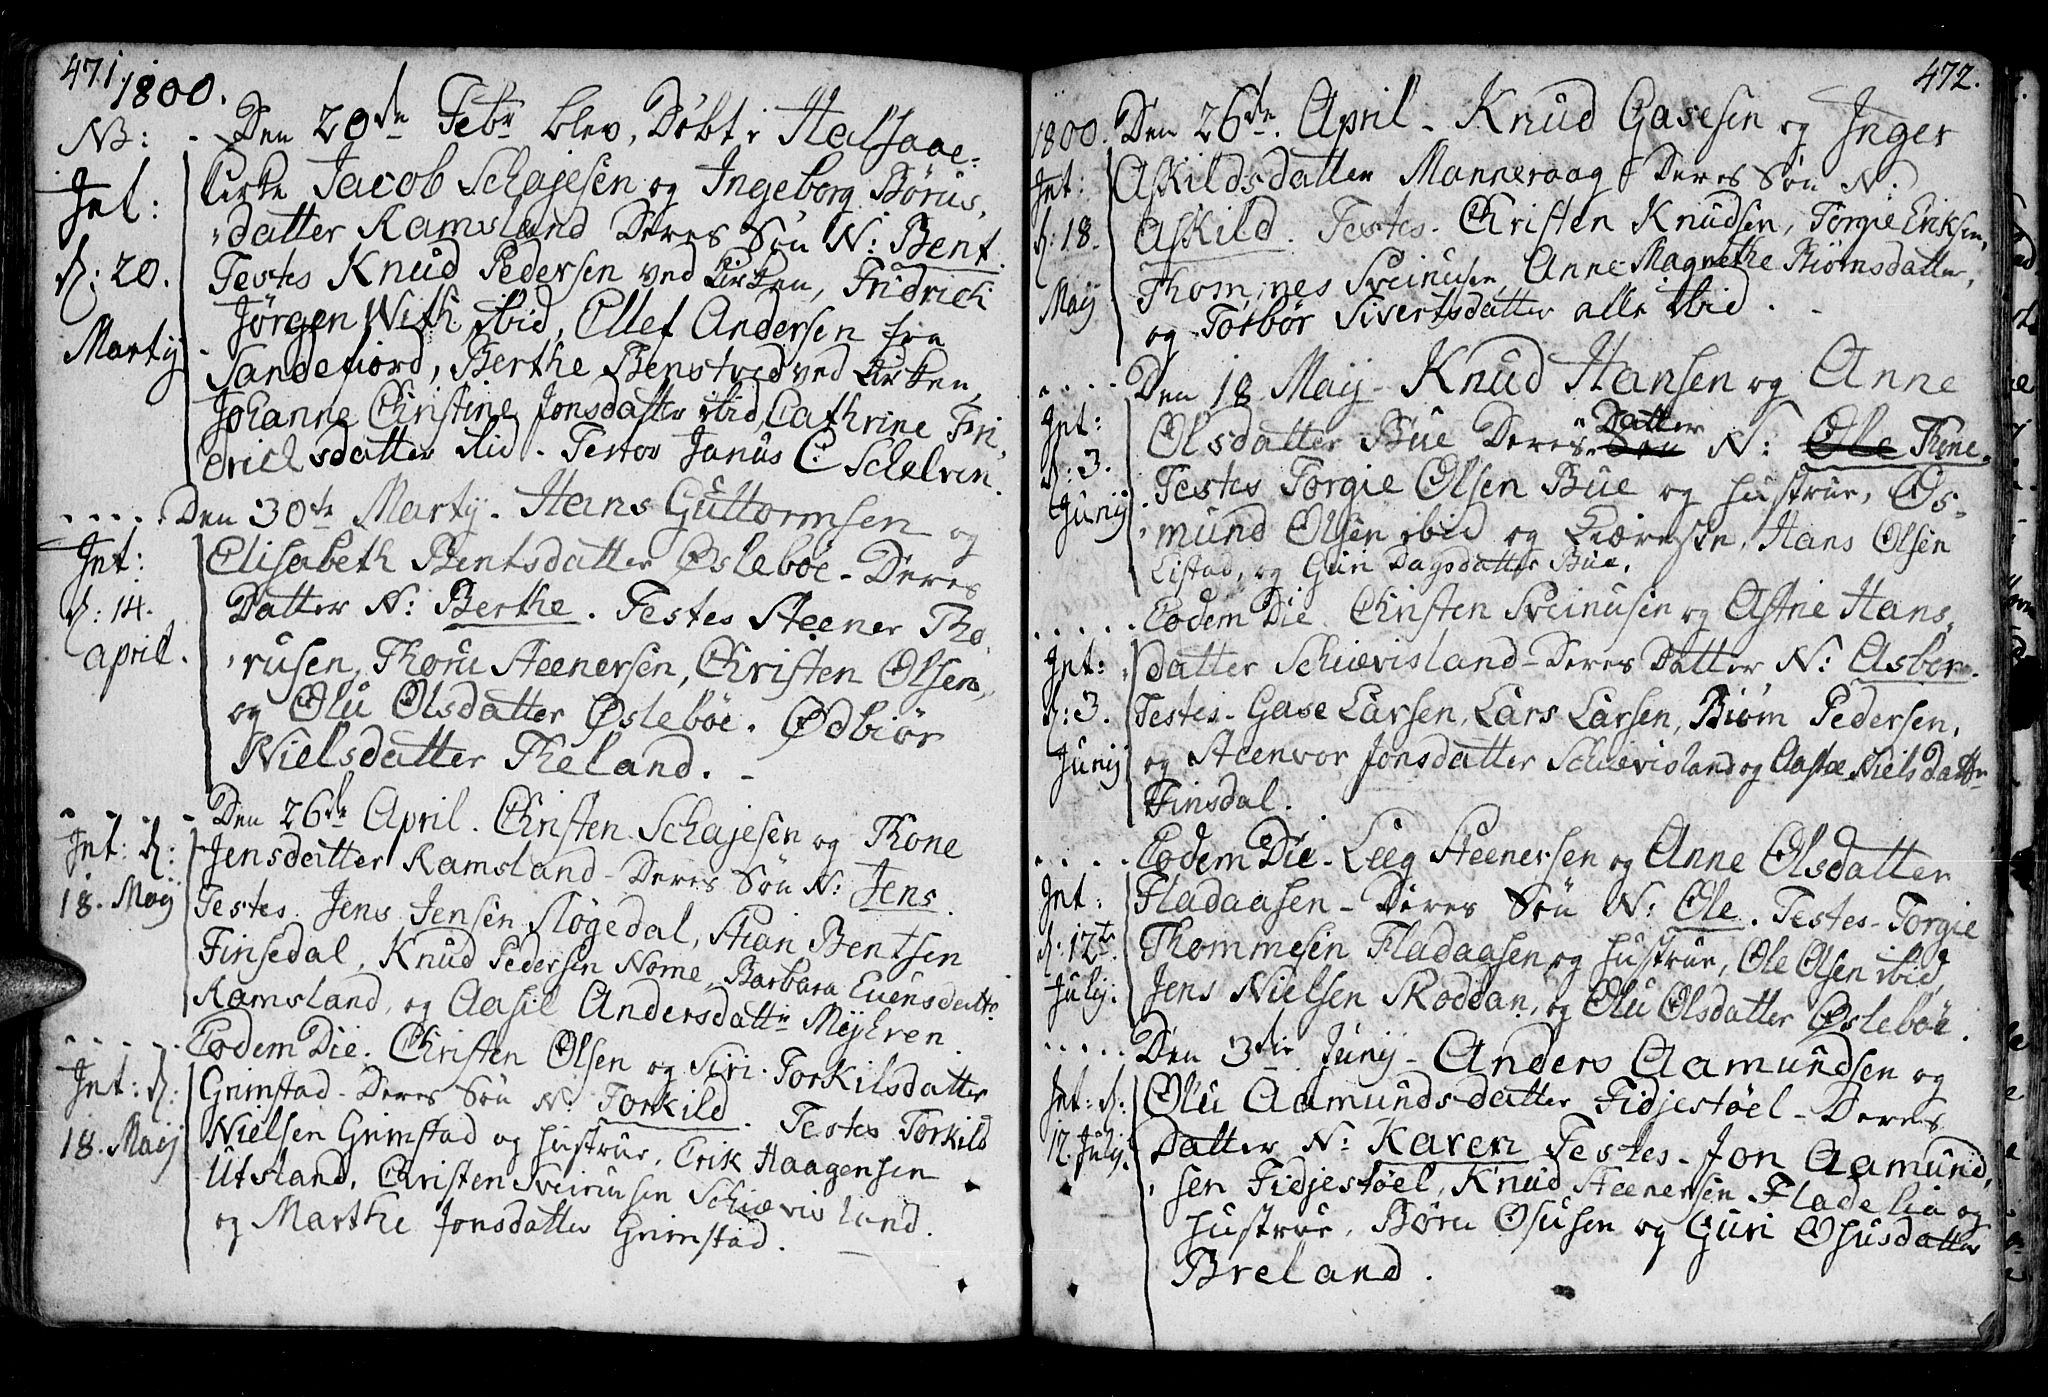 471. 1800.
NB: - Den 20de Febr blev Døbt i Helsaae-
kirke Jacob Schajesen og Ingeborg Børus,
Int: datter Ramsland Deres Søn N: Bent.
d: 20. Testes Knud Pedersen ved Kirken, Fridrich
Jørgen With ibid, Ellef Andersen fra
Martij Sandefiord, Berthe Benstved ved Kirken,
Johanne Christine Jonsdatter ibid, Cathrine Fri,
drichsdatter ibid. Testor Janus C: Schelven.
Den 30te Martij. Hans Guttormsen og
Int: Elisabeth Bentsdatter Øslebøe - Deres
d: 14. Datter N: Berthe. Testes Steener Tho,
April. rusen, Thoru Steenersen, Christen Olsen,
og Olu Olsdatter Øslebøe. Ødbiør
Nielsdatter Theland.
Den 26de April. Christen Schajesen og Thone
Int: d: Jensdatter Ramsland - Deres Søn N: Jens.
18. Maij Testes. Jens Jensen Sløgedal, Stian Bentsen
Finsedal, Knud Pedersen Nome, Barbara Evensdattr
Ramsland, og Aasil Andersdattr Meijeren.
Eodem Die. Christen Olsen og Siri Torkilsdatter
Int: d: Grimstad - Deres Søn N: Torkild. Testes Torkild
18. Maij Nielsen Grimstad og Hustrue, Erik Haagensen
Utsland, Christen Sveinusen Schiævisland.
og Marthe Jonsdatter Grimstad.
472.
1800. Den 26de April - Knud Gasesen og Inger
Int: Askildsdatter Manneraag - Deres Søn N.
d: 18. Askild. Testes. Christen Knudsen, Torgie Eriksen,
Maij Thommes Sveinusen, Anne Magnethe Biørnsdatter,
og Torbør Sivertsdatter alle ibid.
Den 18 Maij - Knud Hansen og Anne
Int: Olsdatter Bue Deres Søn Datter N: Ole Thone.
d: 3. Testes Torgie Olsen Bue og Hustrue, Os-
Junij mund Olsen ibid og Kiæreste, Hans Olsen
Listad, og Guri Dagsdatter Bue.
Eodem Die Christen Sveinusen og Astrie Hans,
Int: datter Schiævisland - Deres Datter N: Asbor.
d: 3. Testes - Gase Larsen, Lars Larsen, Biørn Pedersen,
Junij og Steenvor Jonsdatter Schiævisland og Aaste Nielsdattr
Finsdal.
Eodem Die - Leeg Steenersen og Anne Olsdatter
Int: Fladaasen - Deres Søn N: Ole. Testes - Torgie
d: 12te Thommesen Fladaasen og Hustrue, Ole Olsen ibid,
Julij: Jens Nielsen Skoddan, og Olu Olsdatter Øslebøe.
Den 3die Junij - Anders Aamundsen og
Int: d: Olu Aamundsdatter Fidjestøel - Deres
12. Julij. Datter N: Karen Testes - Jon Aamund,
sen Fidjestøel, Knud Steenersen Fladelia og
Hustrue, Børu Osusen og Guri Osusdatter
Breland.